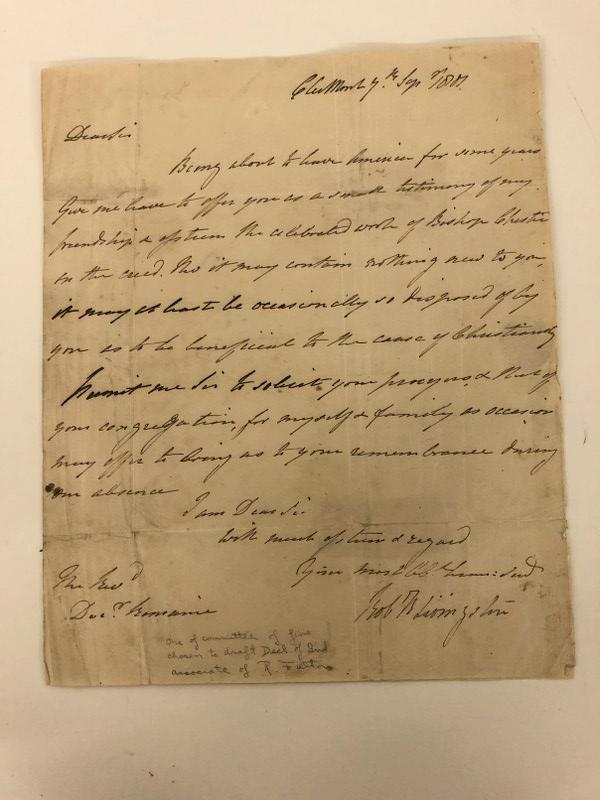 ClerMont 7th Sep 1801.
Dear Sir
Being about to leave America for some years
Give me leave to offer you as a small testimony of my
friendship & esteem the celebrated work of Bishop
on the creed. Tho it may contain nothing new to you,
it may at least be occasionally so disposed of by
you as to be beneficial to the cause of Christianity
Permit me Sir to solicit your prayers & that of
your congregation, for myself & family as occasion
may offer to bring us to your remembrance during
our absence
I am Dear Sir
with much esteem & regard
Your most Ob. Hum: Servt
Robt R Livingston
The Revd
Docr Romaine
one of committee of five
chosen to draft Decl of Ind
associate of R. Fulton